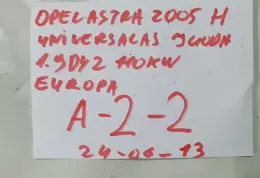 OPEL ASTRA 2005 H
UNIVERSALAS JUODA
1.9DYZ 110KW
EUROPA
A-2-2
24-06-13